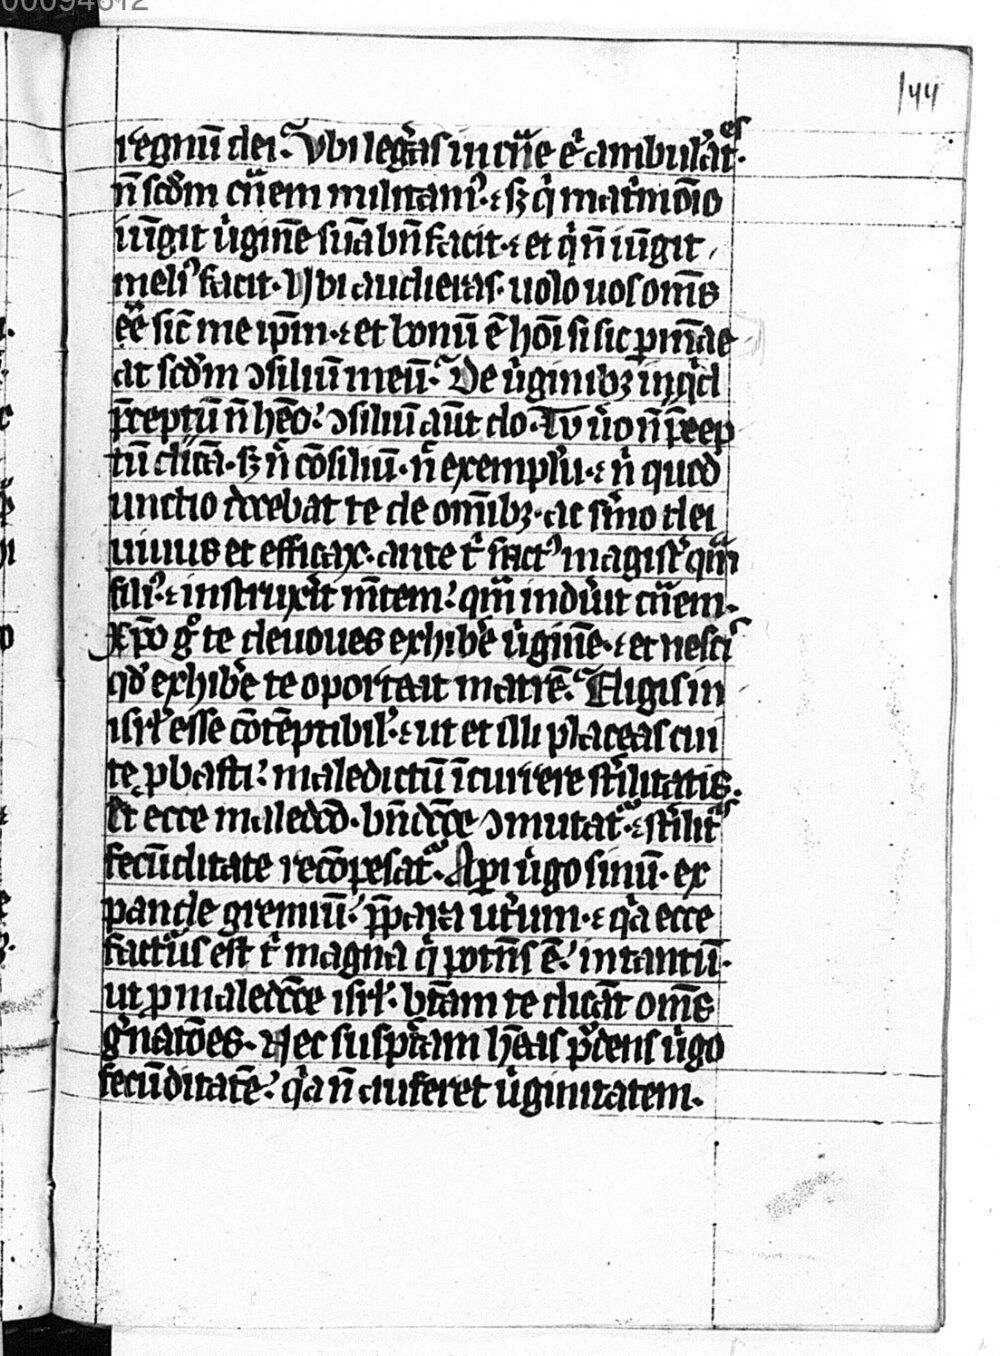 00094612
144
regnū dei. Vbi legeras in carne et ambulātes.
n̄ scdm carnem militamꝰ. ⁊ sꝫ q̇ matrimōio
iūgit uirginē suā bn̄ facit. ⁊ et q̇ n̄ iūgit
meliꝰ facit. Vbi audieras. uolo uos om̄s
ēē sic̄ me ip̄m. ⁊ et bonū ē hōi si sic ꝑmāe
at scdm ↄsiliū meū. De uirginibꝫ inqͥd
p̄ceptū n̄ hēo. ↄsiliū aūt do. Tu uͦ n̄ p̄cep
tū dicā. sꝫ n̄ cōsiliū. n̄ exemplū. ⁊ n̄ quod
unctio docebat te de om̄ibꝫ. ac sermo dei
uiuus et efficax. ante tͥ factꝰ magister qͣm
filiꝰ. ⁊ instruxit mētem. qͣm induit carnem.
xp̄o gͦ te deuoues exhibere uirginē. ⁊ et nescis
qd̄ exhibere te oporteat matrē. Eligis in
isrl̄ esse cōtēptibilis. ⁊ ut et illi placeas cui
te ꝓbasti. maledictū īcurrere sterilitatis.
Et ecce maledc̄o. bn̄dc̄c̄e ↄmutatur. ⁊ sterilitas
fecūditate recōpēsatur. Aperi uirgo sinū. ex
pande gremiū. p̄para uterum. ⁊ qͣa ecce
facturus est tͥ magna qͥ potēs ē. in tantū.
ut ꝓ maledc̄c̄e isrl̄. btām te dicāt om̄s
gn̄atōes. Nec suspectam hēas prudens uirgo
fecūditatē. qͣa n̄ auferet uirginitatem.